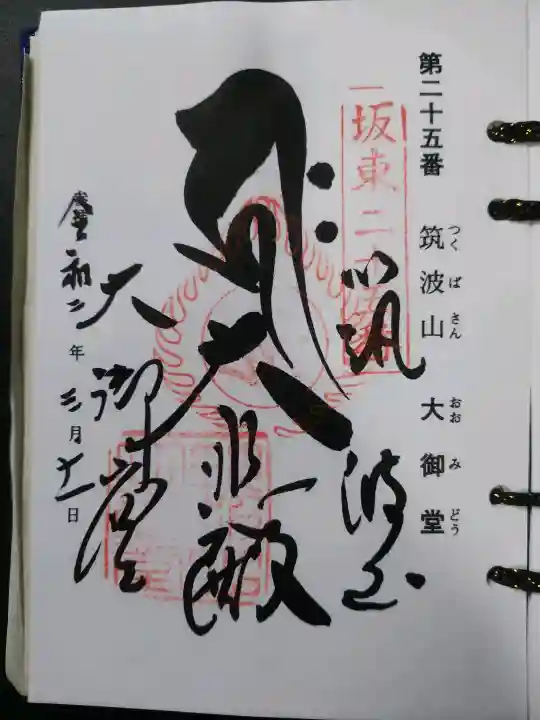 第二十五番 筑波山 大御堂
つくばさん おおみどう
坂東二十五番
筑波山
大悲殿
大御堂
令和二年三月十一日